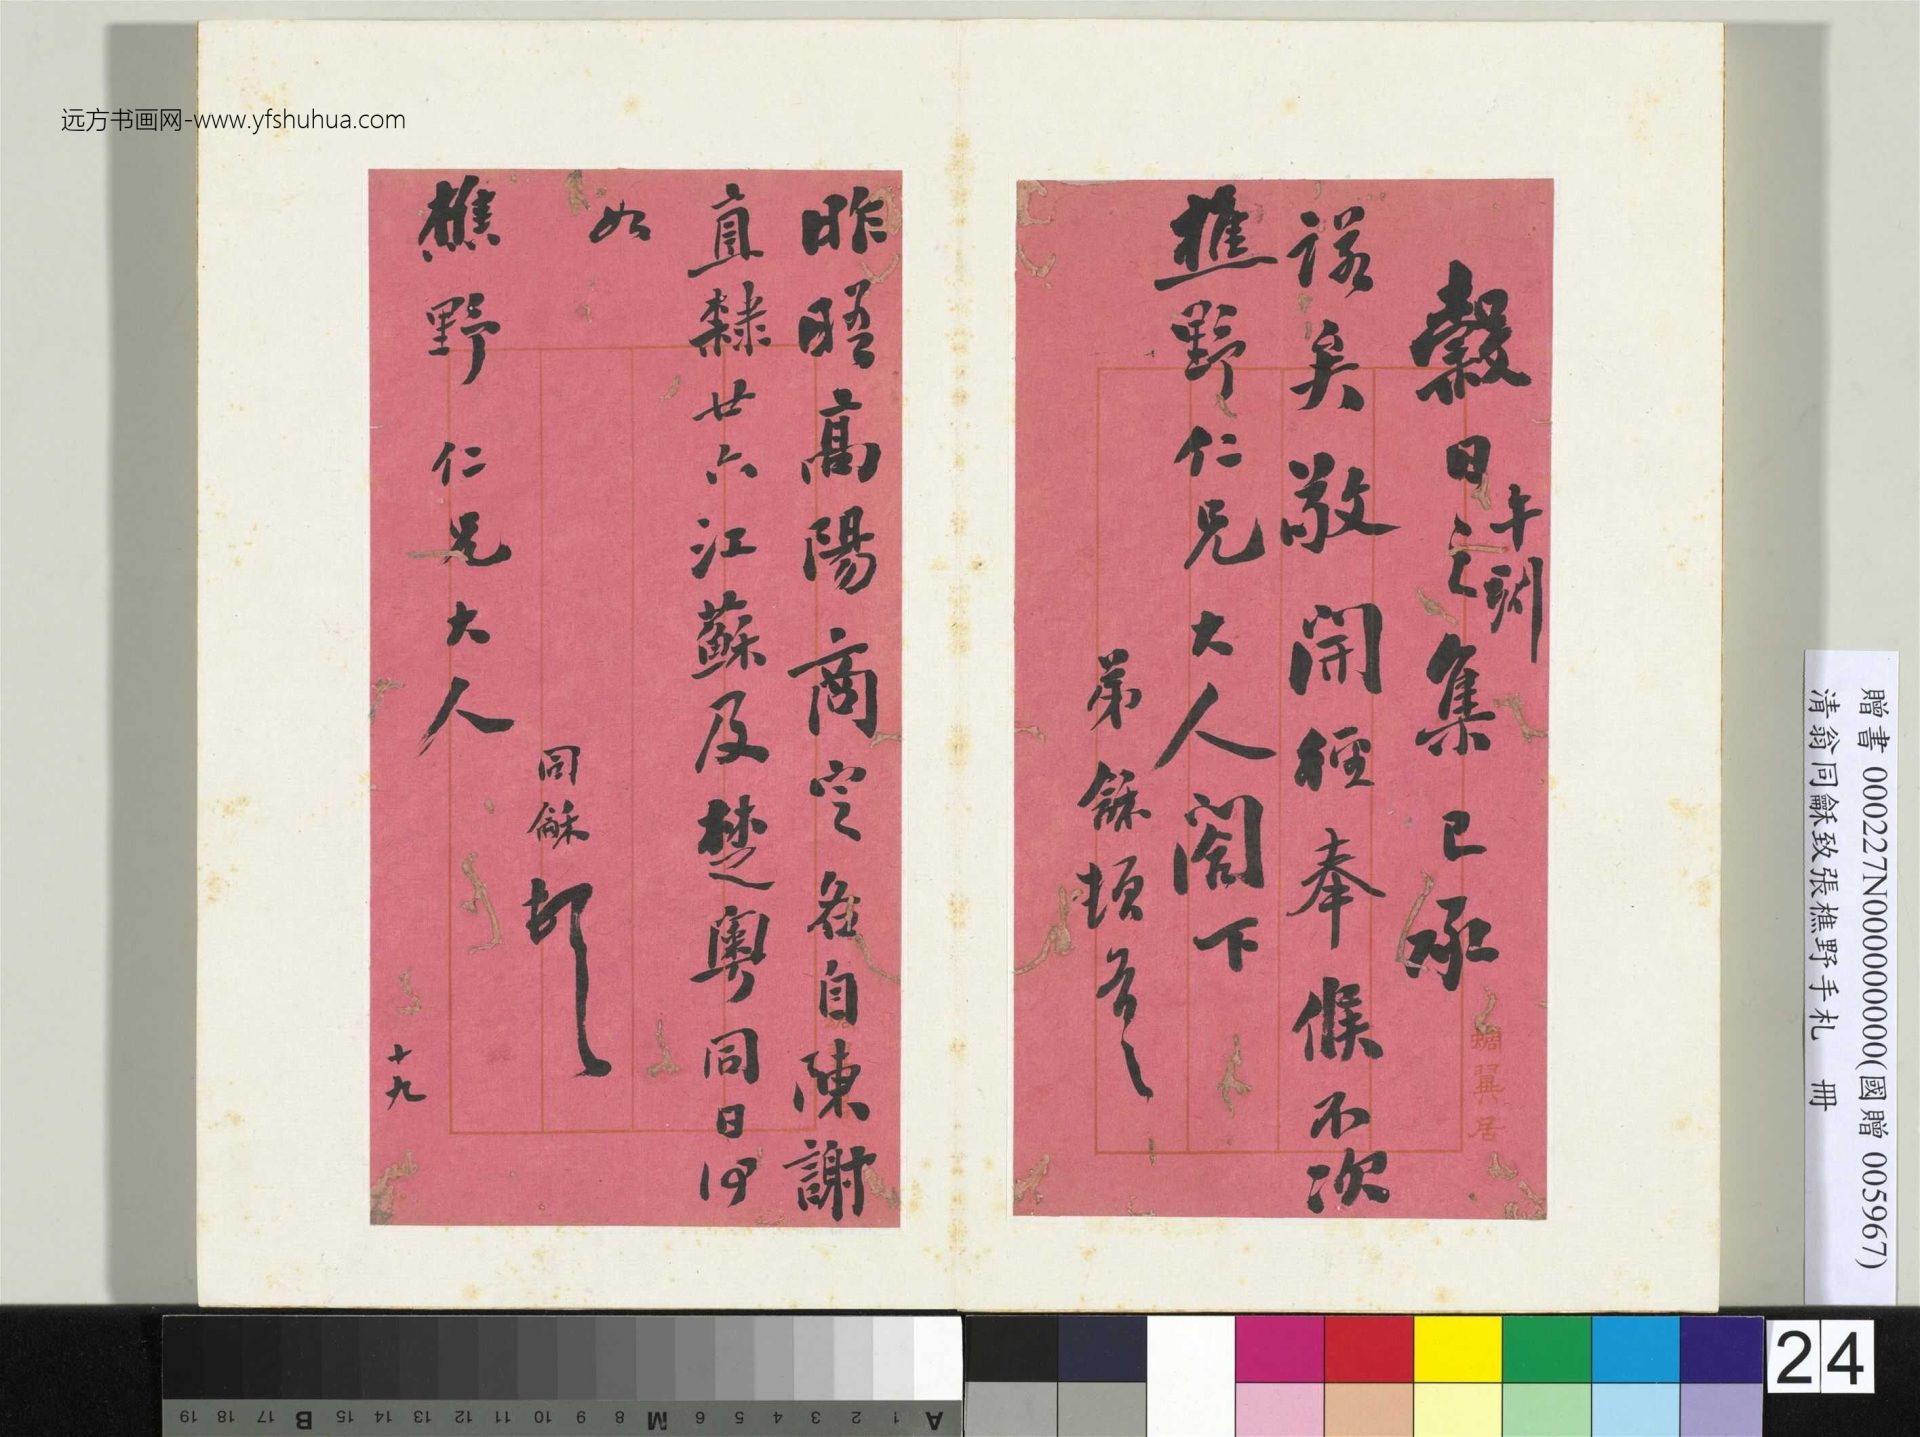 远方书画网-www.yfshuhua.com
穀日午刻之集已承
諾矣敬開徑奉候不次
樵野仁兄大人閣下
弟龢頓首
蜩翼居
昨晤高陽商定各自陳謝
直隸廿六江蘇及楚粵同日何
如
同龢頓
樵野仁兄大人
十九
贈書 000227N000000000(國贈 005967)
清翁同龢致張樵野手札 冊
24
A 1 2 3 4 5 6 M 8 9 10 11 12 13 14 15 B 17 18 19